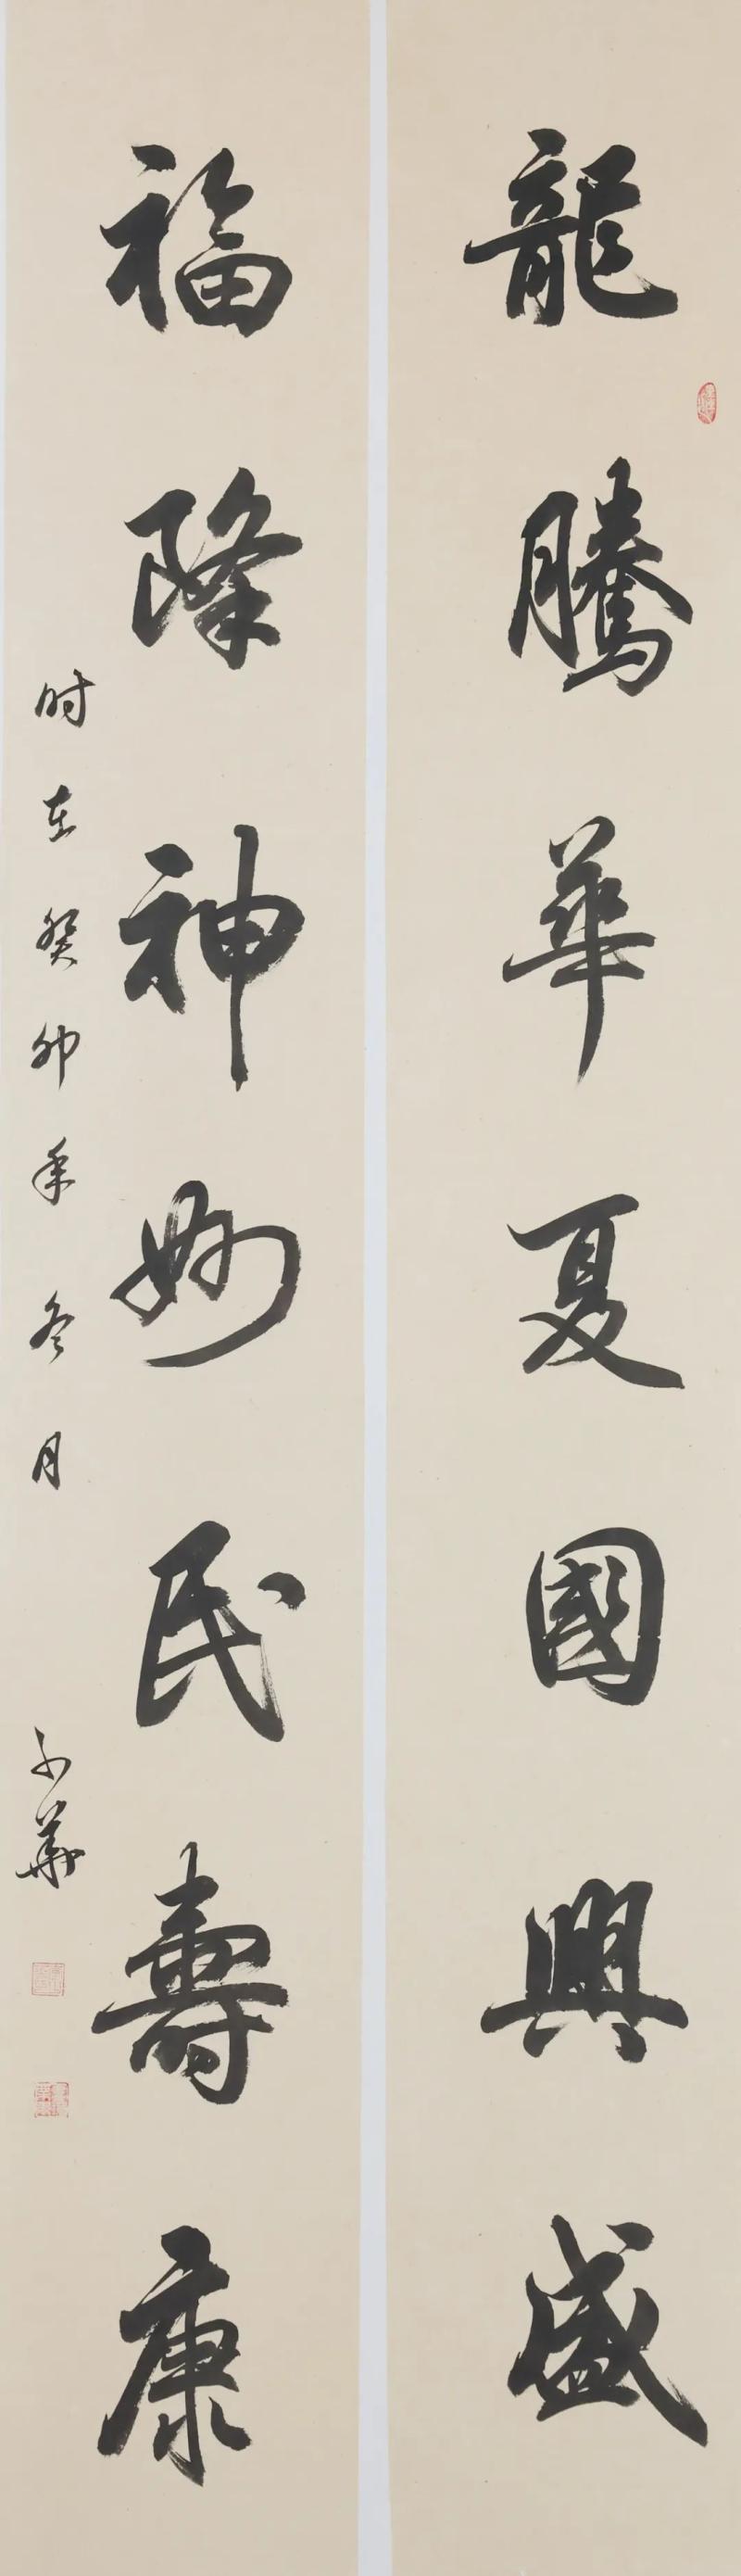 龍騰華夏國興盛
福降神妙民壽康
时在癸卯年冬月
華